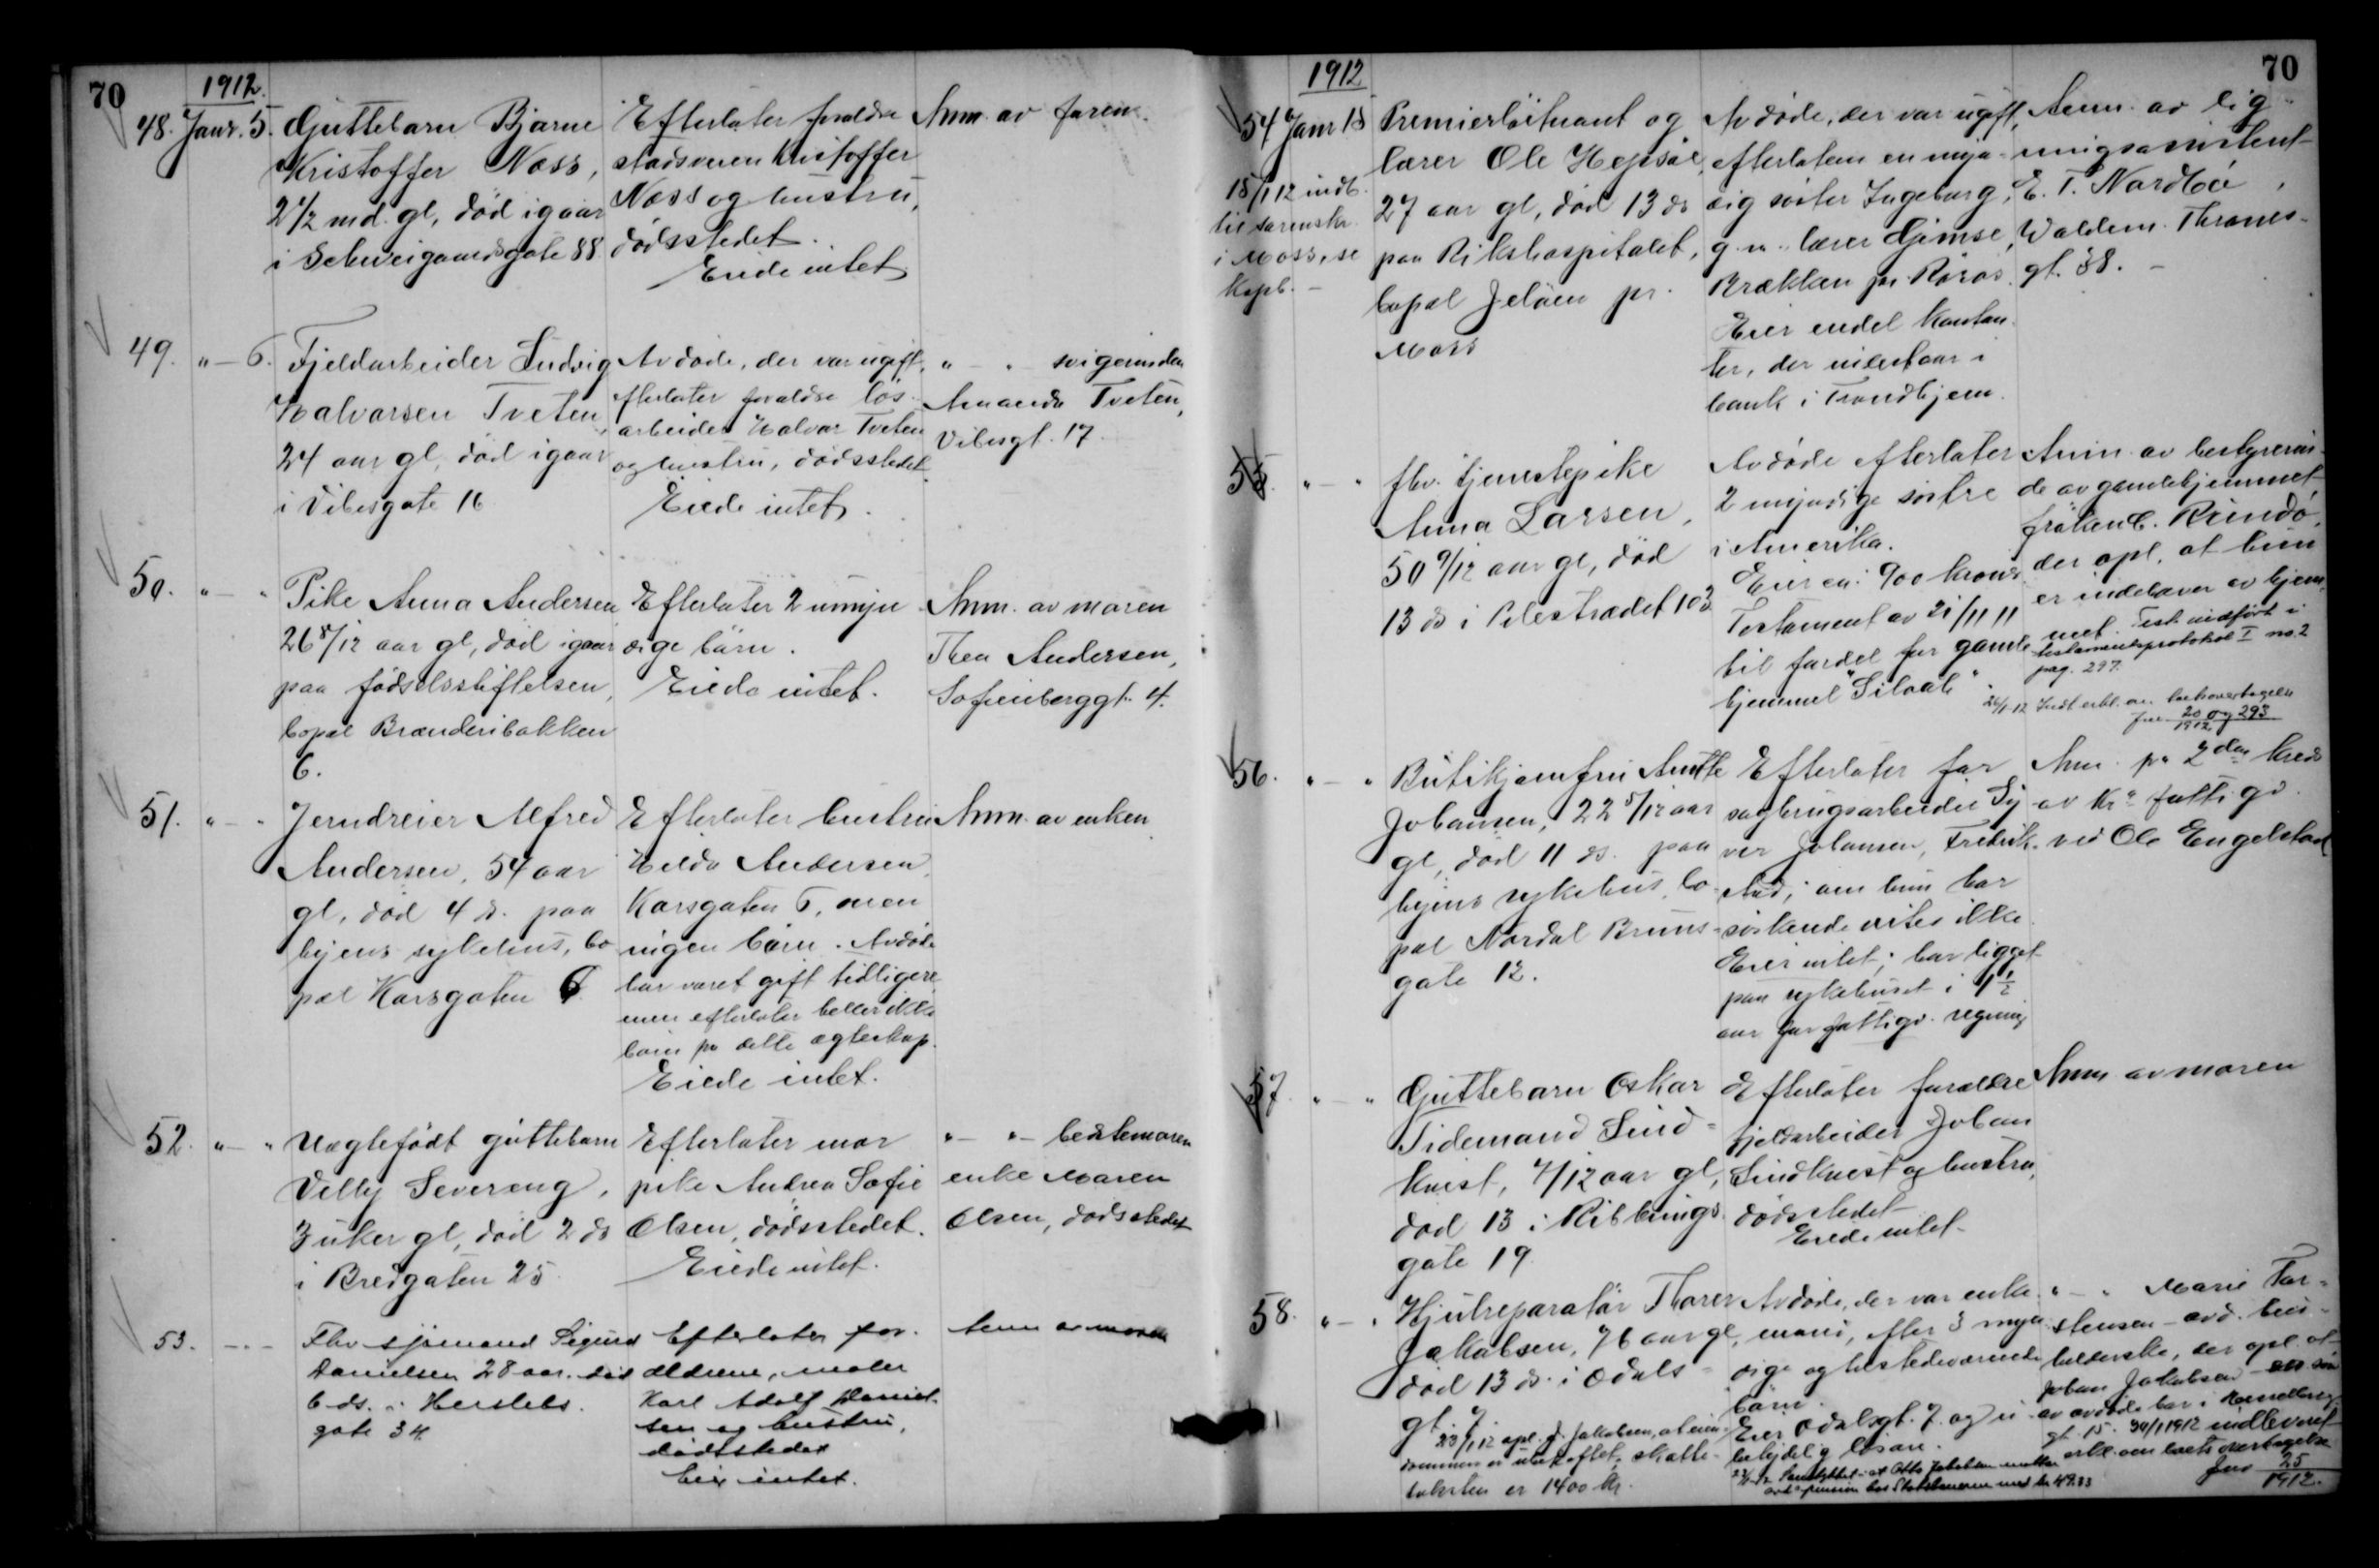 70
1912.
48. Janr. 5. Guttebarn Bjarne
Kristoffer Næss,
2 1/2 md. gl, död igaar
i Schweigaardsgate 88
Efterlater forældre
Kristoffer
Næss og hustru,
dödsstedet.
Eiede intet
Anm. av faren.
49. " — 6. Fjeldarbeider Ludvig
Halvorsen Tveten,
24 aar gl, död igaar
i Vibesgate 16
Avdöde, der var ugift,
efterlater forældre lös-
arbeider Halvor Tveten
og hustru, dödsstedet
Eiede intet.
" — " svigerinden
Amanda Tveten,
Vibesgt. 17
50. " — " Pike Anna Andersen
26 8/12 aar gl, död igaar
paa födselsstiftelsen,
bopæl Brænderibakken
6.
Efterlater 2 umyn
dige börn.
Eiede intet.
Anm. av moren
Thea Andersen,
Sofienberggt. 4.
51. " — " Jerndreier Alfred
Andersen, 54 aar
gl, död 4 ds. paa
byens sykehus, bo
pæl Korsgaten 6
Efterlater hustru
Hilda Andersen,
Korsgaten 6, men
ingen börn. Avdöde
har været gift tidligere
men efterlater heller ikke
börn fra dette ægteskap.
Eiede intet.
Anm. av enken
52. " — " Uægtefödt guttebarn
Villy Severeng,
3 uker gl, död 2 ds
i Bredgaten 25
Efterlater mor
pike Andrea Sofie
Olsen, dödsstedet.
Eiede intet.
" — " — bestemoren
enke Maren
Olsen, dödsstedet
53. — " — Fhv sjömand Sigurd
Danielsen 28 aar. död
6 ds. i Herslebs
gate 34
Efterlater for-
ældrene, maler
Karl Adolf Daniel-
sen og hustru,
dödsstedet
Eier intet.
Anm av moren
70
1912
54 Janr 15
15/1 12 indb.
til
i Moss, se
Kopb. —
Premierlöitnant og
lærer Ole Hepsöe,
27 aar gl, död 13 ds
paa Rikshospitalet,
bopæl Jelöen pr.
Moss
Avdöde, der var ugift,
efterlater en myn-
dig söster Ingeborg,
g. m. lærer Gimse,
Brækken pr. Röros.
Eier endel kontan-
ter, der indestaar i
bank i Trondhjem.
Anm. av lig-
ningsassistent
E. T. Nordböe,
Waldem. Thranes-
gt. 38. —
55. " — " fhv. tjenestepike
Anna Larsen,
50 9/12 aar gl, död
13 ds i Pilestrædet 103
Avdöde efterlater
2 myndige söstre
i Amerika.
Eier ca. 900 kroner
Testament av 21/11 11
til fordel for gamle
hjemmet "Siloah".
Anm. av bestyrerin-
de av gamlehjemmet
fröken C. Rundö,
der opl. at hun
er indehaver av hjem
met. Test. indfört i
testamentsprotokol I no. 2
pag. 297.
26/1 12 Indl. erkl. om boets overtagelse
Jnr 20 og 293
1912
56. " — " Butikjomfru Anette
Johansen, 22 5/12 aar
gl, död 11 ds. paa
byens sykehus, bo-
pæl Nordal Bruns-
gate 12.
Efterlater far
sagbrugsarbeider Sy-
ver Johansen, Fredrik-
stad; om hun har
söskende vites ikke.
Eier intet; har ligget
paa sykehuset i 1 1/2
aar for fattigv. regning
Anm. fra 2den kreds
av Kra fattigv.
ved Ole Engelstad
57. " — " Guttebarn Oskar
Tidemand Lind-
kvist, 7/12 aar gl,
död 13 i Kiblungs-
gate 19
Efterlater forældre
fjeldarbeider Johan
Lindkvist og hustru,
dödsstedet
Eiede intet
Anm av moren
58. " — " Hjulreparatör Thorer
Jakobsen, 76 aar gl,
död 13 ds. i Odals-
gt. 7.
23/1 12 opl. J. Jakobsen, at eien-
dommen er ubeheftet, skatte-
taksten er 1400 kr.
Avdöde, der var enke-
mand, efter 3 myn
dige og tilstedeværende
börn.
Eier Odalsgt. 7. og u-
betydelig lösöre.
" — " Marie Tor-
stensen — avd. hus-
holderske, der opl. at
Johan Jakobsen — en sön
av avdöde bor i
gt. 15. 30/1 1912 indleveret
erkl. om boets overtagelse
Jnr 25
1912.